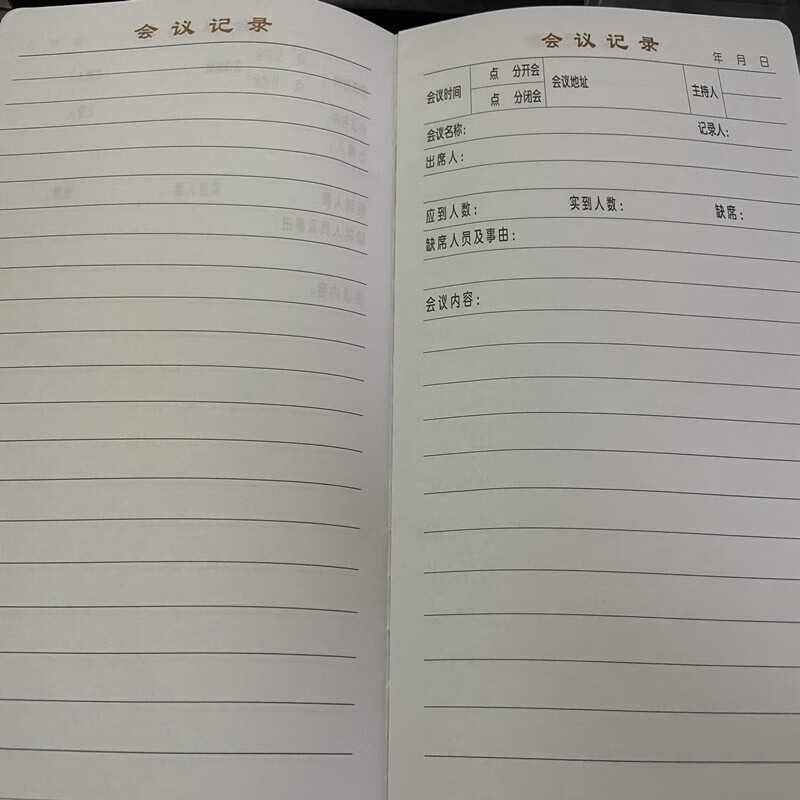 会议记录
会议记录
年 月 日
会议时间 点 分开会 会议地址 主持人
点 分闭会
会议名称： 记录人：
出席人：
应到人数： 实到人数： 缺席：
缺席人员及事由：
会议内容：